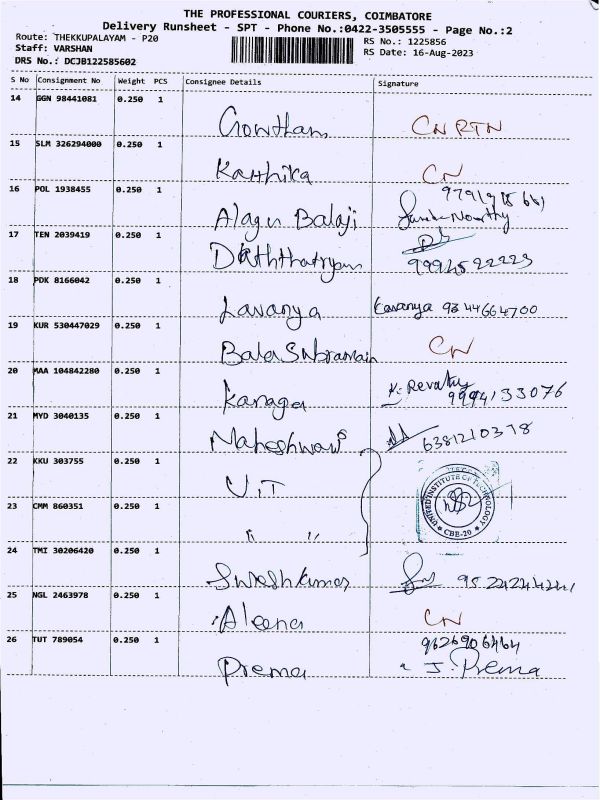 THE PROFESSIONAL COURIERS, COIMBATORE
Delivery Runsheet - SPT - Phone No.:0422-3505555 - Page No.:2
Route: THEKKUPALAYAM - P20
Staff: VARSHAN
DRS No.: DCJB122585602
RS No.: 1225856
RS Date: 16-Aug-2023
S No Consignment No Weight PCS Consignee Details Signature
14 GGN 98441081 0.250 1
Gowtham CN RTN
15 SLM 326294000 0.250 1
Karthika CN
16 POL 1938455 0.250 1
Alagu Balaji
17 TEN 2039419 0.250 1
99925 22223
18 PDK 8166042 0.250 1
Lavanya Lavanya 9344664700
19 KUR 530447029 0.250 1
Bala Subramain CN
20 MAA 104842280 0.250 1
Kanaga K. Revathy 9994133076
21 MYD 3040135 0.250 1
Maheshwari 6381210378
22 KKU 303755 0.250 1
U.I.T
UNITED INSTITUTE OF TECHNOLOGY
CBE-20
23 CMM 860351 0.250 1
" "
24 TMI 30206420 0.250 1
Sureshkumar
25 NGL 2463978 0.250 1
Aleena CN
26 TUT 789054 0.250 1
9626906464
Prema J. Prema